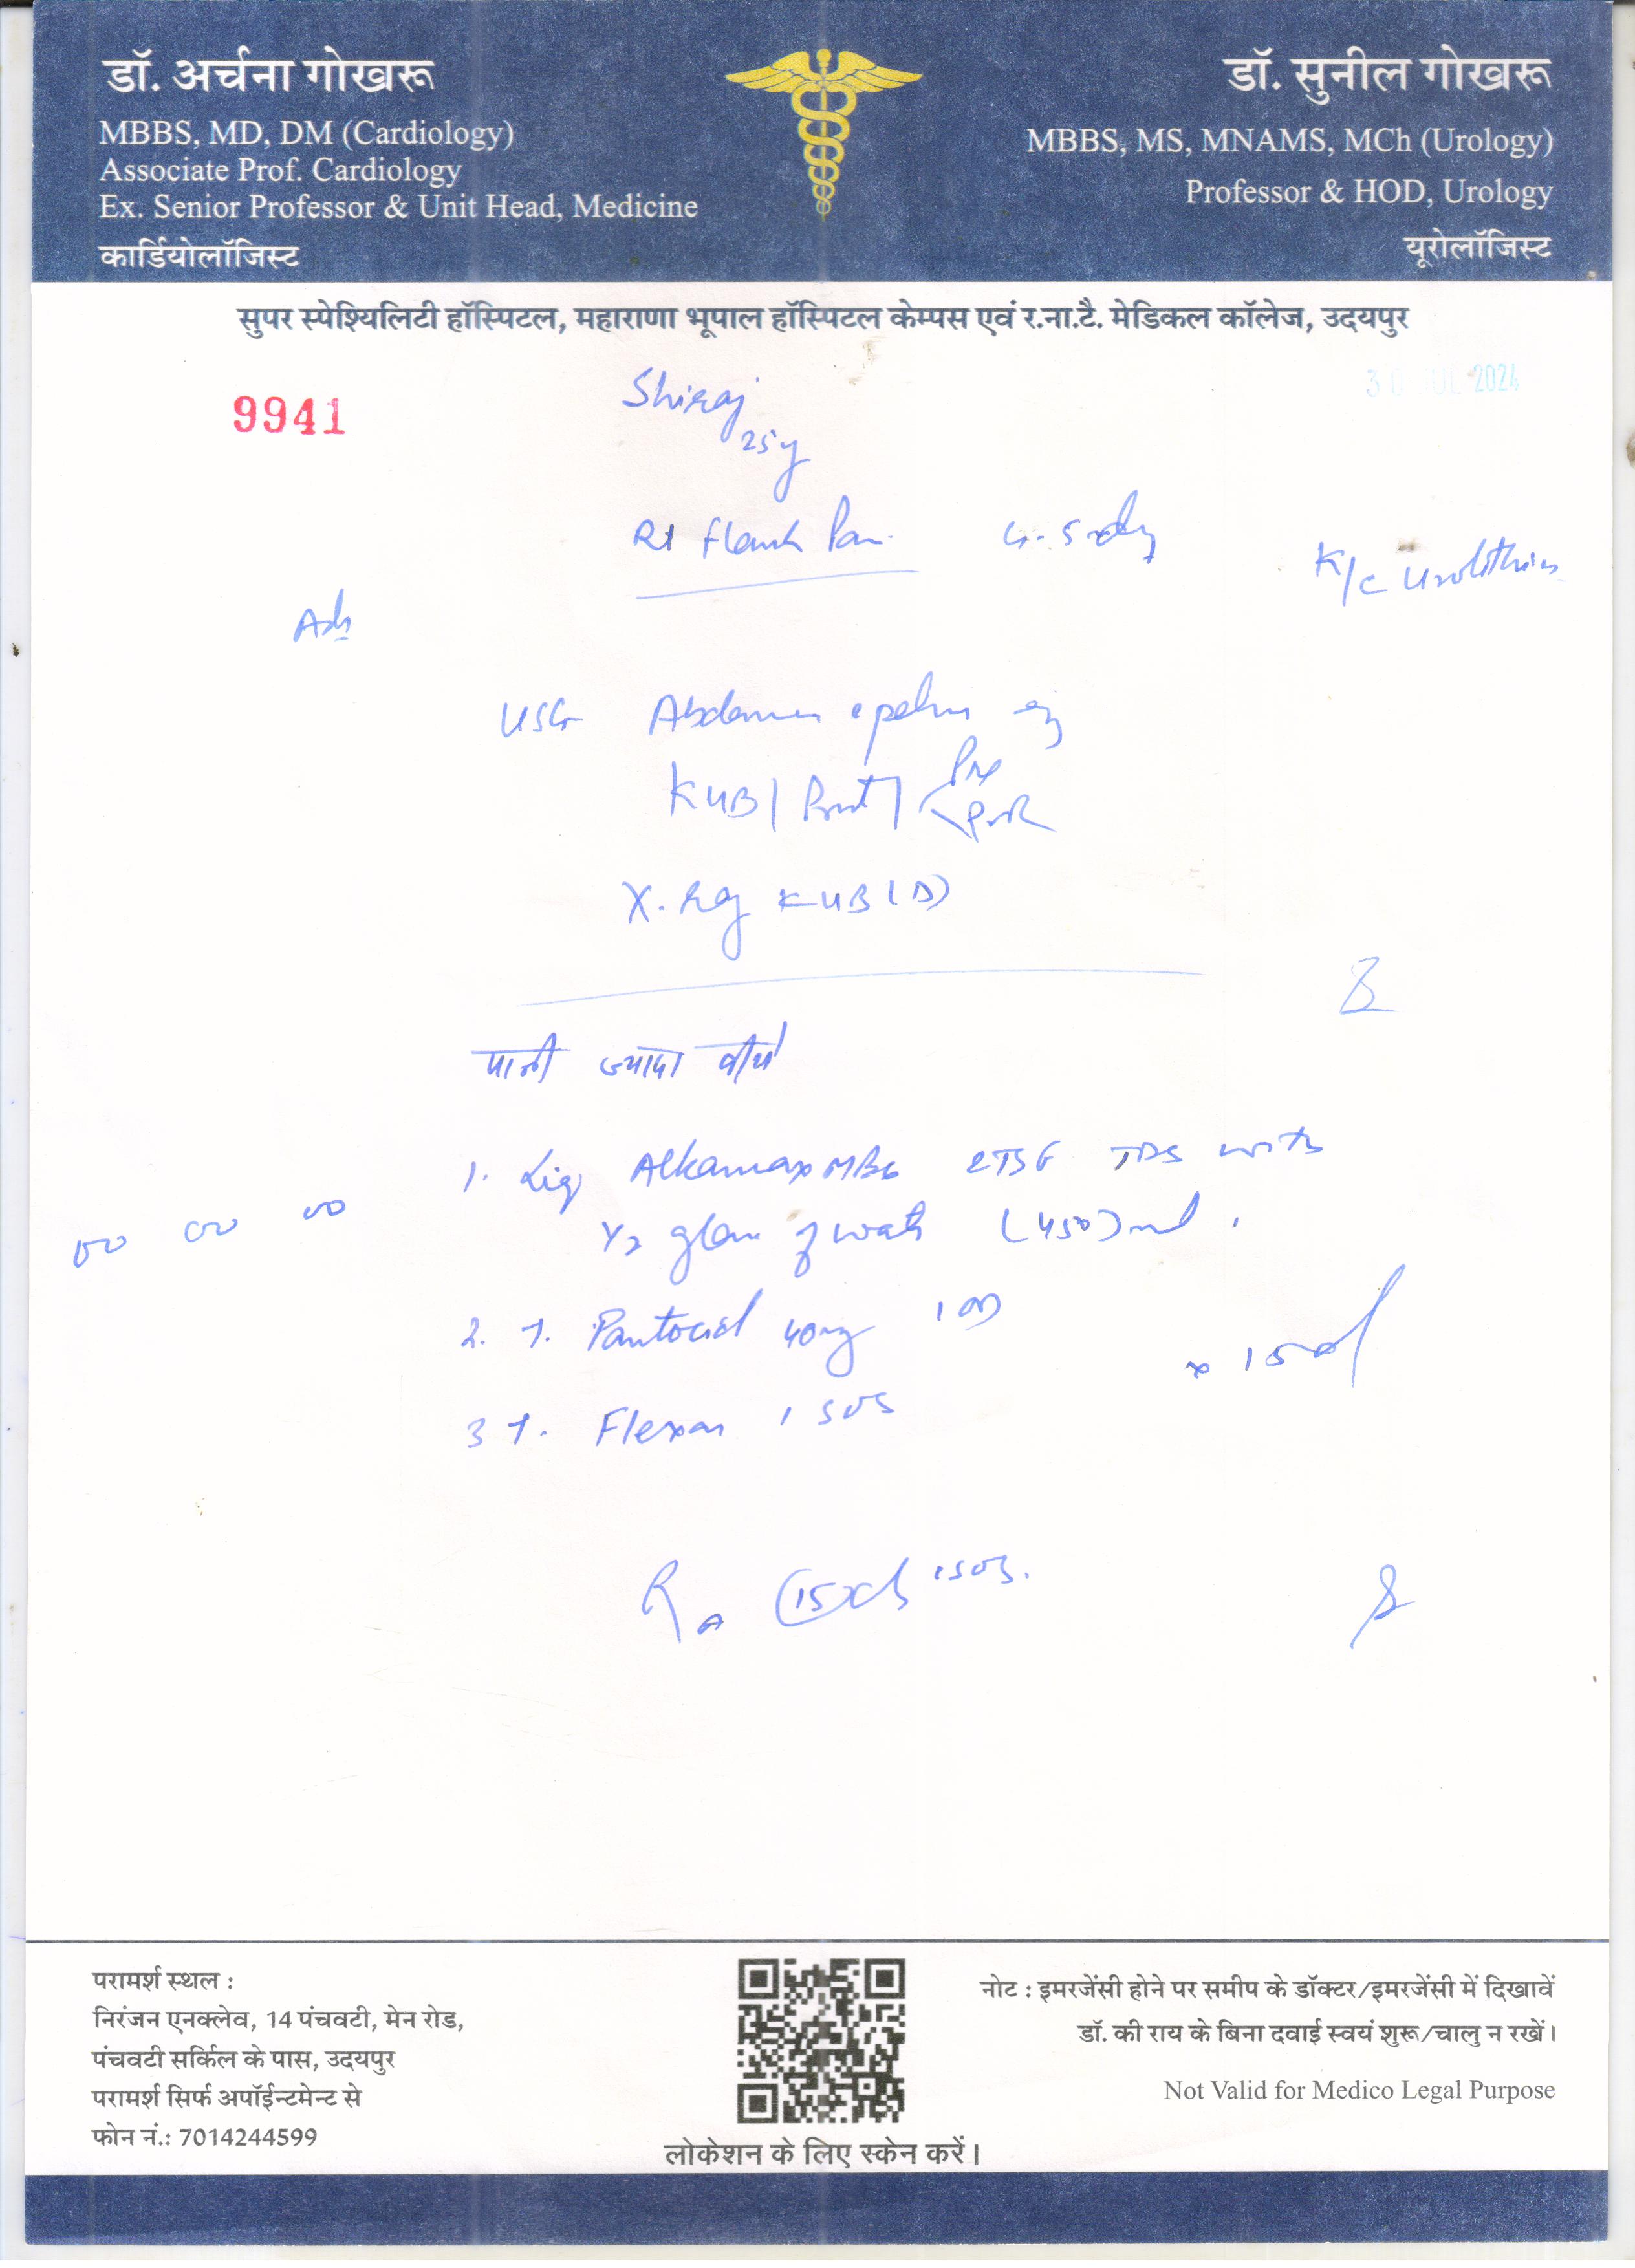 डॉ. अर्चना गोखरू
MBBS, MD, DM (Cardiology)
Associate Prof. Cardiology
Ex. Senior Professor & Unit Head, Medicine
कार्डियोलॉजिस्ट
डॉ. सुनील गोखरू
MBBS, MS, MNAMS, MCh (Urology)
Professor & HOD, Urology
यूरोलॉजिस्ट
सुपर स्पेश्यिलिटी हॉस्पिटल, महाराणा भूपाल हॉस्पिटल केम्पस एवं र.ना.टै. मेडिकल कॉलेज, उदयपुर
9941
Shiraj
30 JUL 2024
25y
Rt flank Pain
K/C Urolithiasis
USG Abdomen pelvis
KUB/
PVR
X-Ray KUB (D)
पानी ज्यादा पीये
1. Liq Alkamax MB6 2TSF TDS with
1/2 glass of water ml.
2. T. Pantocid 40mg 1 OD
x 15d
3 T. Flexon 1 SOS
15 SOS.
परामर्श स्थल :
निरंजन एनक्लेव, 14 पंचवटी, मेन रोड,
पंचवटी सर्किल के पास, उदयपुर
परामर्श सिर्फ अपॉईन्टमेन्ट से
फोन नं.: 7014244599
लोकेशन के लिए स्केन करें।
नोट : इमरजेंसी होने पर समीप के डॉक्टर/इमरजेंसी में दिखावें
डॉ. की राय के बिना दवाई स्वयं शुरू/चालु न रखें।
Not Valid for Medico Legal Purpose